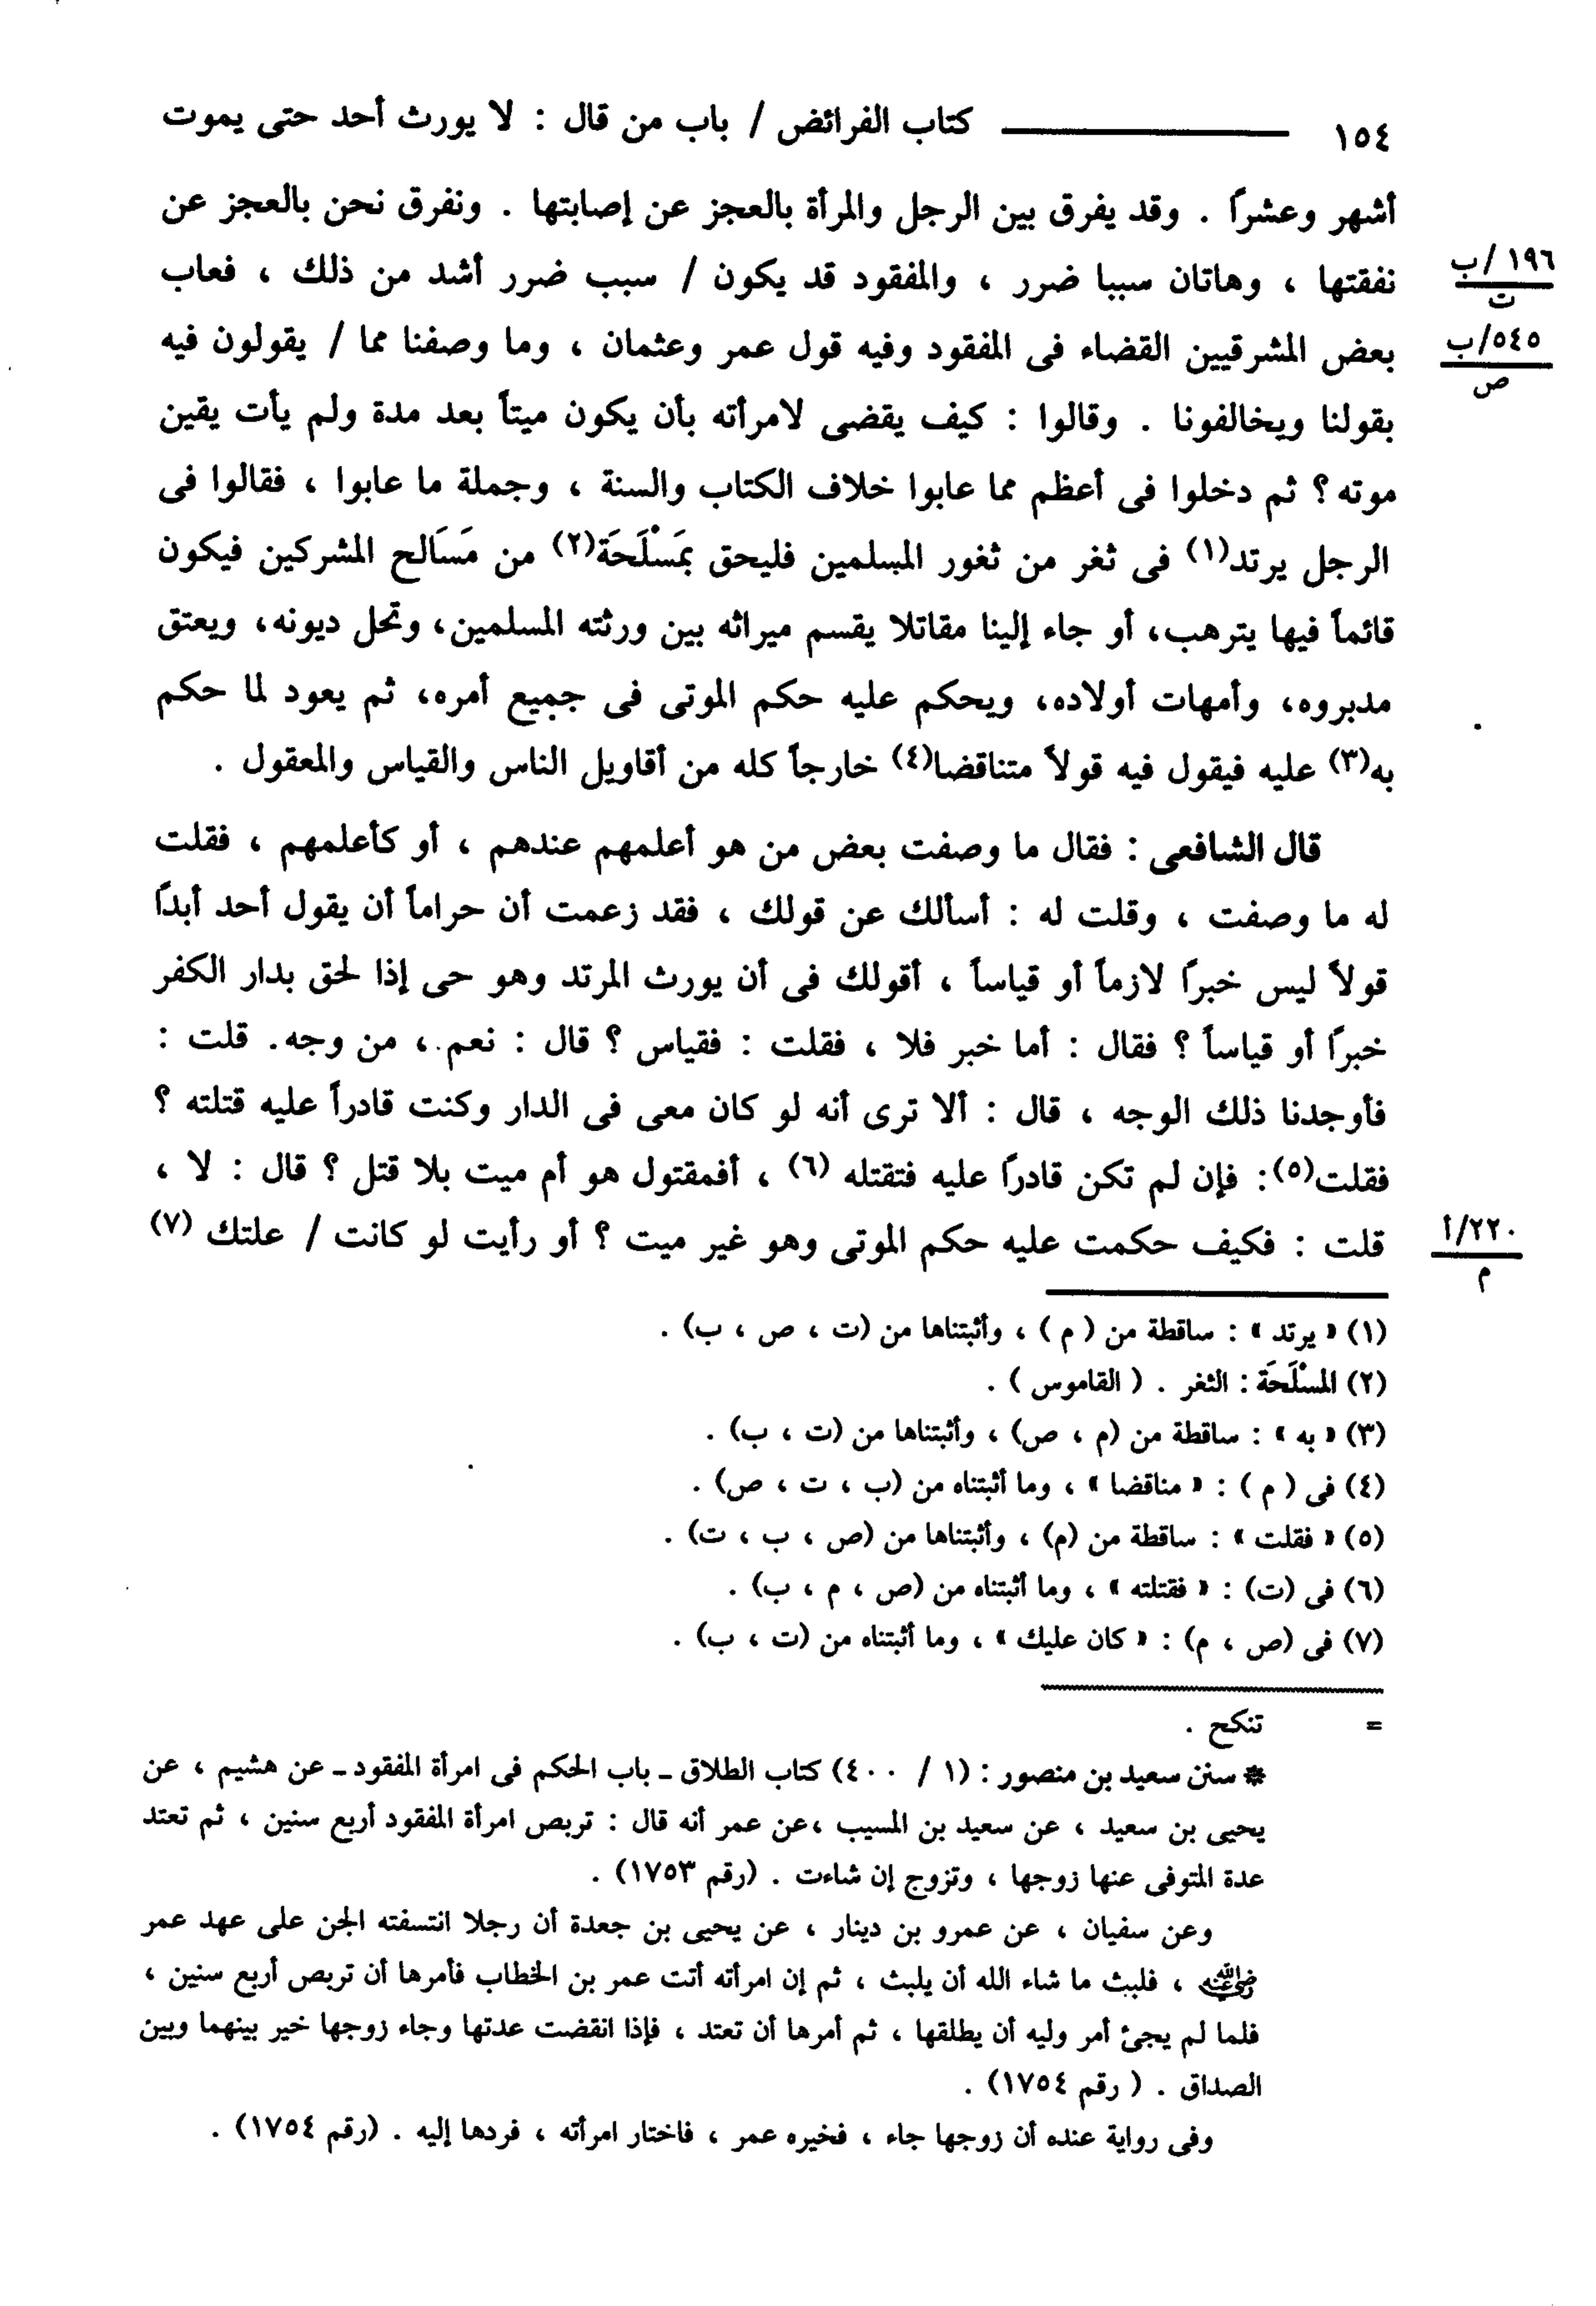 ١٥٤ ــــــــــــــ كتاب الفرائض / باب من قال : لا يورث أحد حتى يموت
أشهر وعشراً . وقد يفرق بين الرجل والمرأة بالعجز عن إصابتها . ونفرق نحن بالعجز عن
نفقتها ، وهاتان سببا ضرر ، والمفقود قد يكون / سبب ضرر أشد من ذلك ، فعاب
١٩٦/ب
ت
بعض المشرقيين القضاء فى المفقود وفيه قول عمر وعثمان ، وما وصفنا مما / يقولون فيه
٥٤٥/ب
ص
بقولنا ويخالفونا . وقالوا : كيف يقضى لامرأته بأن يكون ميتاً بعد مدة ولم يأت يقين
موته ؟ ثم دخلوا فى أعظم مما عابوا خلاف الكتاب والسنة ، وجملة ما عابوا ، فقالوا فى
الرجل يرتد(١) فى ثغر من ثغور المسلمين فليحق بمَسْلَحَة(٢) من مَسَالح المشركين فيكون
قائماً فيها يترهب، أو جاء إلينا مقاتلا يقسم ميراثه بين ورثته المسلمين، وتحل ديونه، ويعتق
مدبروه، وأمهات أولاده، ويحكم عليه حكم الموتى فى جميع أمره، ثم يعود لما حكم
به(٣) عليه فيقول فيه قولاً متناقضا(٤) خارجاً كله من أقاويل الناس والقياس والمعقول .
قال الشافعى : فقال ما وصفت بعض من هو أعلمهم عندهم ، أو كأعلمهم ، فقلت
له ما وصفت ، وقلت له : أسألك عن قولك ، فقد زعمت أن حراماً أن يقول أحد أبداً
قولاً ليس خبراً لازماً أو قياساً ، أقولك فى أن يورث المرتد وهو حى إذا لحق بدار الكفر
خبراً أو قياساً ؟ فقال : أما خبر فلا ، فقلت : فقياس ؟ قال : نعم ، من وجه. قلت :
فأوجدنا ذلك الوجه ، قال : ألا ترى أنه لو كان معى فى الدار وكنت قادراً عليه قتلته ؟
فقلت(٥): فإن لم تكن قادراً عليه فتقتله (٦) ، أفمقتول هو أم ميت بلا قتل ؟ قال : لا ،
قلت : فكيف حكمت عليه حكم الموتى وهو غير ميت ؟ أو رأيت لو كانت / علتك (٧)
٢٢٠/أ
م
(١) « يرتد » : ساقطة من ( م ) ، وأثبتناها من (ت ، ص ، ب) .
(٢) المسْلَحَة : الثغر . ( القاموس ) .
(٣) « به » : ساقطة من (م ، ص) ، وأثبتناها من (ت ، ب) .
(٤) فى ( م ) : « مناقضا » ، وما أثبتناه من (ب ، ت ، ص) .
(٥) « فقلت » : ساقطة من (م) ، وأثبتناها من (ص ، ب ، ت) .
(٦) فى (ت) : « فقتلته » ، وما أثبتناه من (ص ، م ، ب) .
(٧) فى (ص ، م) : « كان عليك » ، وما أثبتناه من (ت ، ب) .
= تنكح .
* سنن سعيد بن منصور : (١ / ٤٠٠) كتاب الطلاق ـ باب الحكم فى امرأة المفقود ـ عن هشيم ، عن
يحيى بن سعيد ، عن سعيد بن المسيب ،عن عمر أنه قال : تربص امرأة المفقود أربع سنين ، ثم تعتد
عدة المتوفى عنها زوجها ، وتزوج إن شاءت . (رقم ١٧٥٣) .
وعن سفيان ، عن عمرو بن دينار ، عن يحيى بن جعدة أن رجلا انتسفته الجن على عهد عمر
رضي الله عنه ، فلبث ما شاء الله أن يلبث ، ثم إن امرأته أتت عمر بن الخطاب فأمرها أن تربص أربع سنين ،
فلما لم يجئ أمر وليه أن يطلقها ، ثم أمرها أن تعتد ، فإذا انقضت عدتها وجاء زوجها خير بينهما وبين
الصداق . ( رقم ١٧٥٤) .
وفى رواية عنده أن زوجها جاء ، فخيره عمر ، فاختار امرأته ، فردها إليه . (رقم ١٧٥٤) .